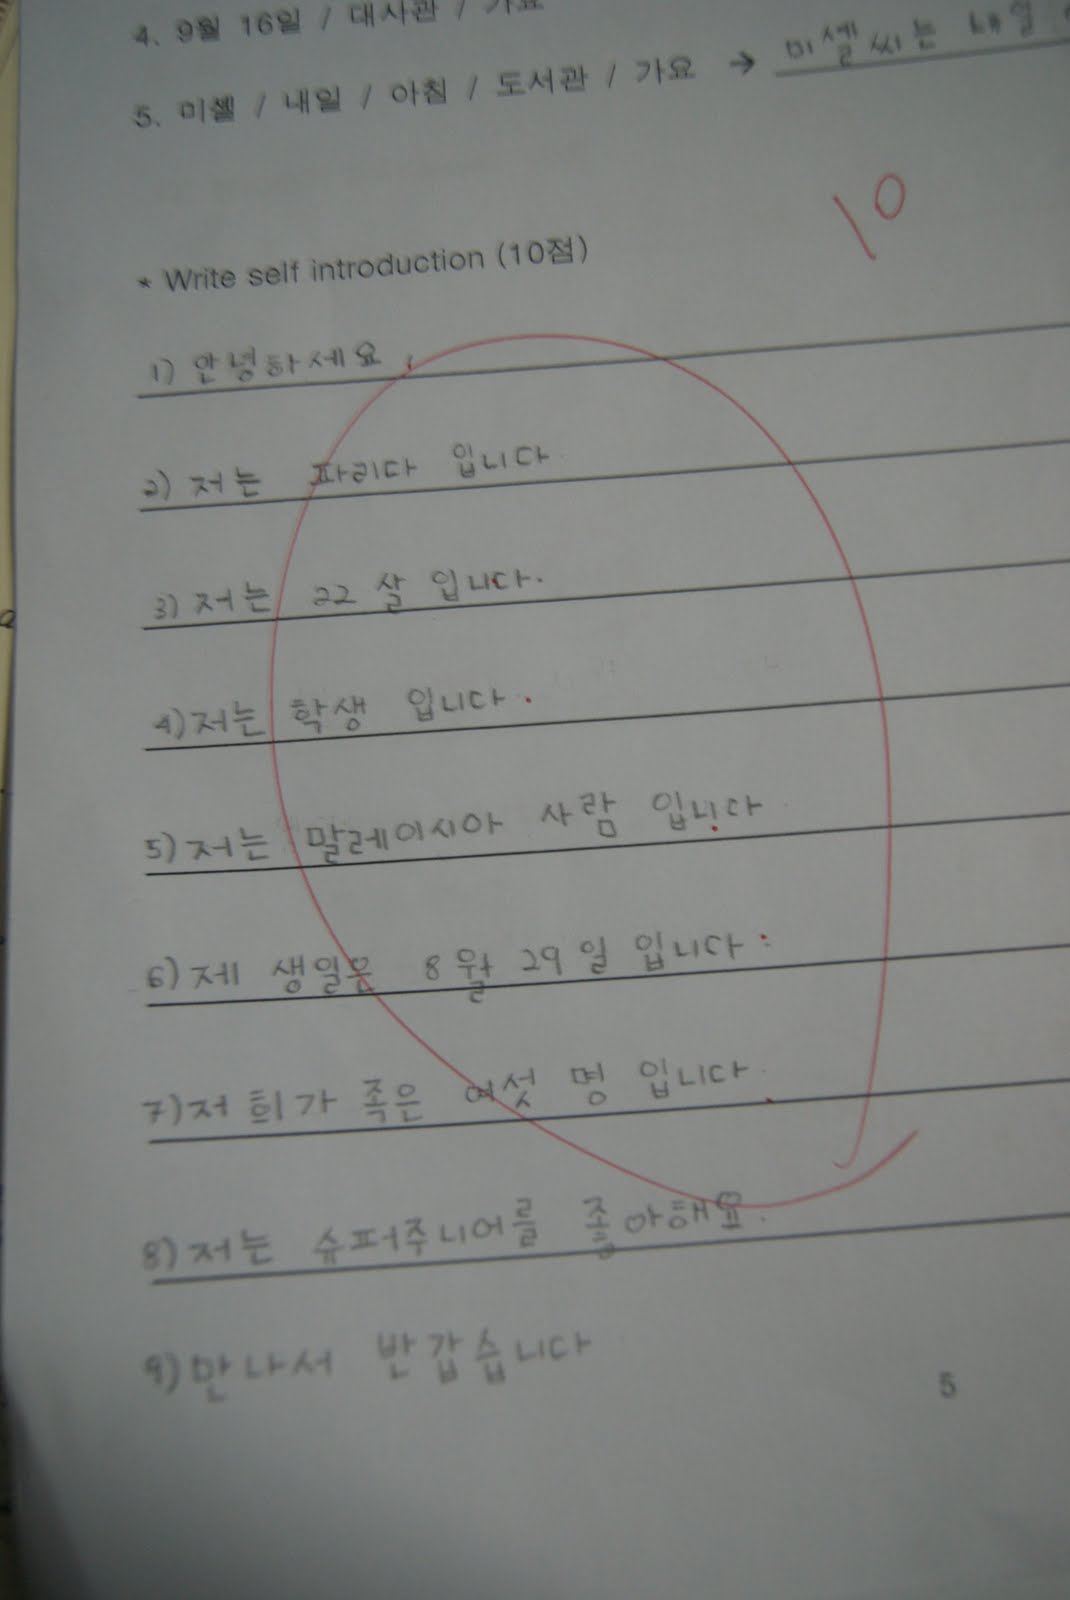 4. 9월 16일 / 대사관 / 가요
5. 미셸 / 내일 / 아침 / 도서관 / 가요 → 미셸씨는 내일
10
* Write self introduction (10점)
1) 안녕하세요.
2) 저는 파리다 입니다
3) 저는 22 살 입니다.
4) 저는 학생 입니다.
5) 저는 말레이시아 사람 입니다
6) 제 생일은 8월 29일 입니다.
7) 저희가 족은 여섯 명 입니다.
8) 저는 슈퍼주니어를 좋아해요.
9) 만나서 반갑습니다
5